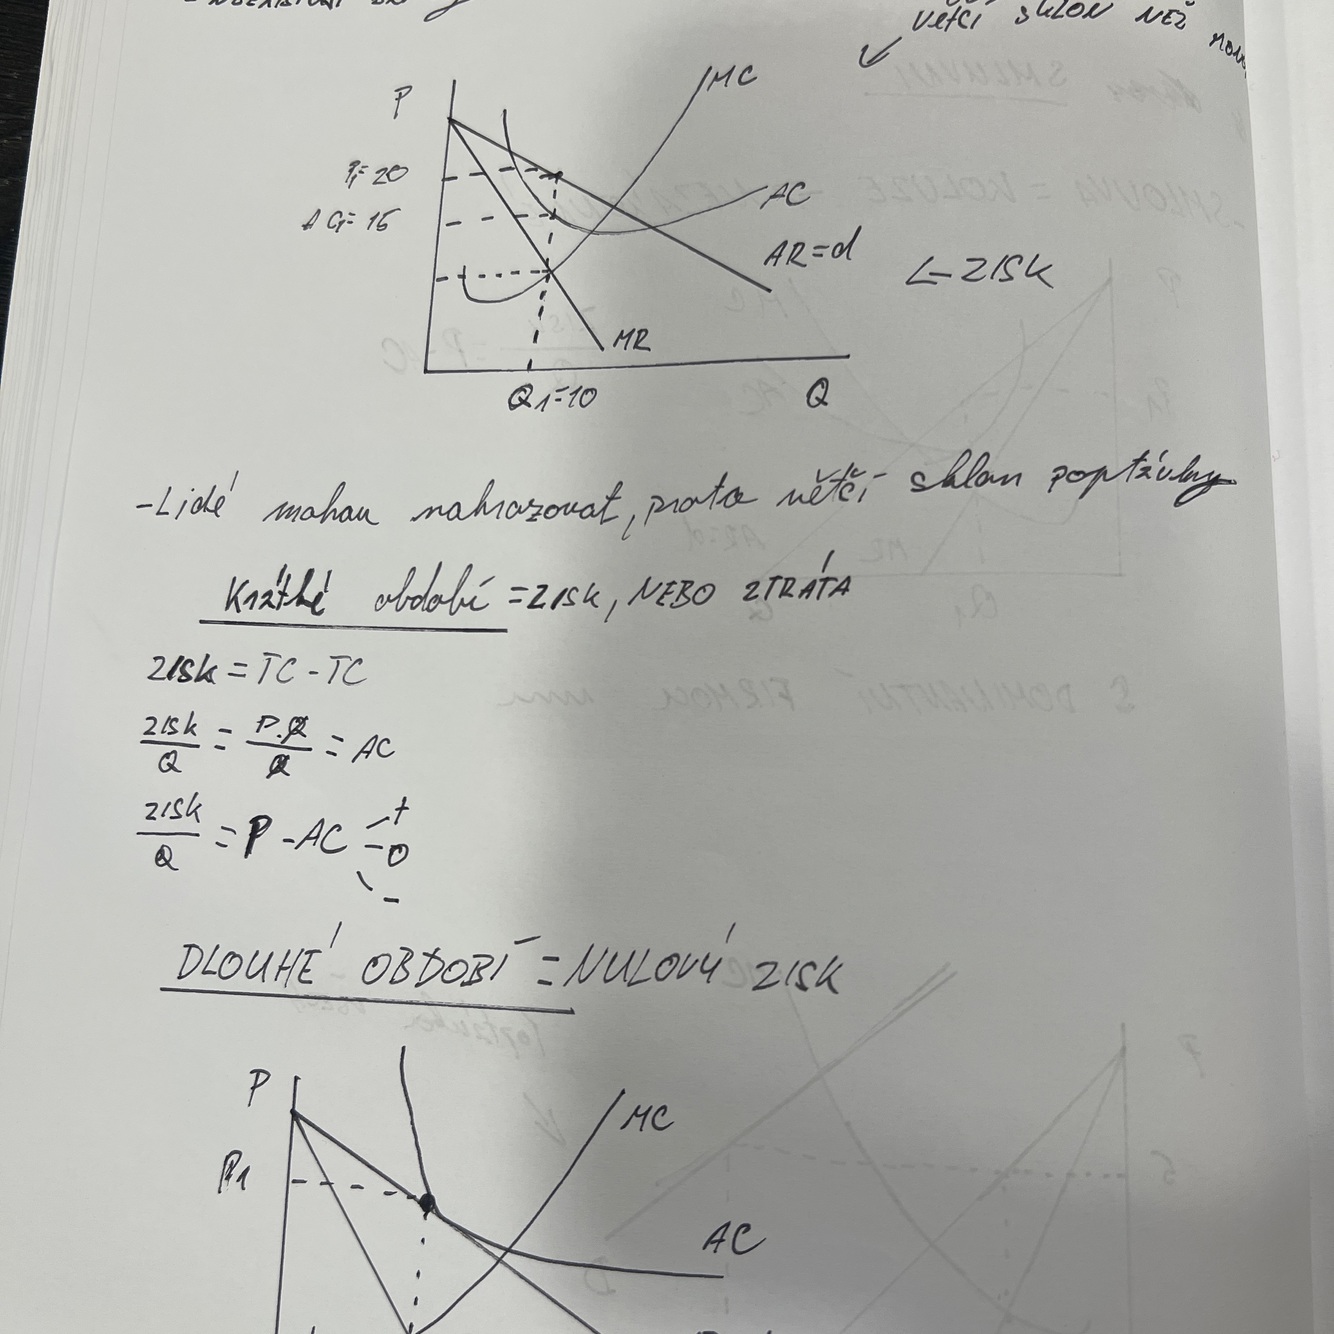 VĚTŠÍ SKLON NEŽ
P
MC
P₁=20
AC
AC₁=15
AR=d
∠=ZISK
MR
Q₁=10
Q
-Lidé mohou nahrazovat, proto větší sklon poptávky
Krátké období = ZISK, NEBO ZTRÁTA
ZISK = TC - TC
ZISK/Q = P.Q/Q = AC
ZISK/Q = P - AC + 0 -
DLOUHÉ OBDOBÍ = NULOVÝ ZISK
P
MC
P1
AC